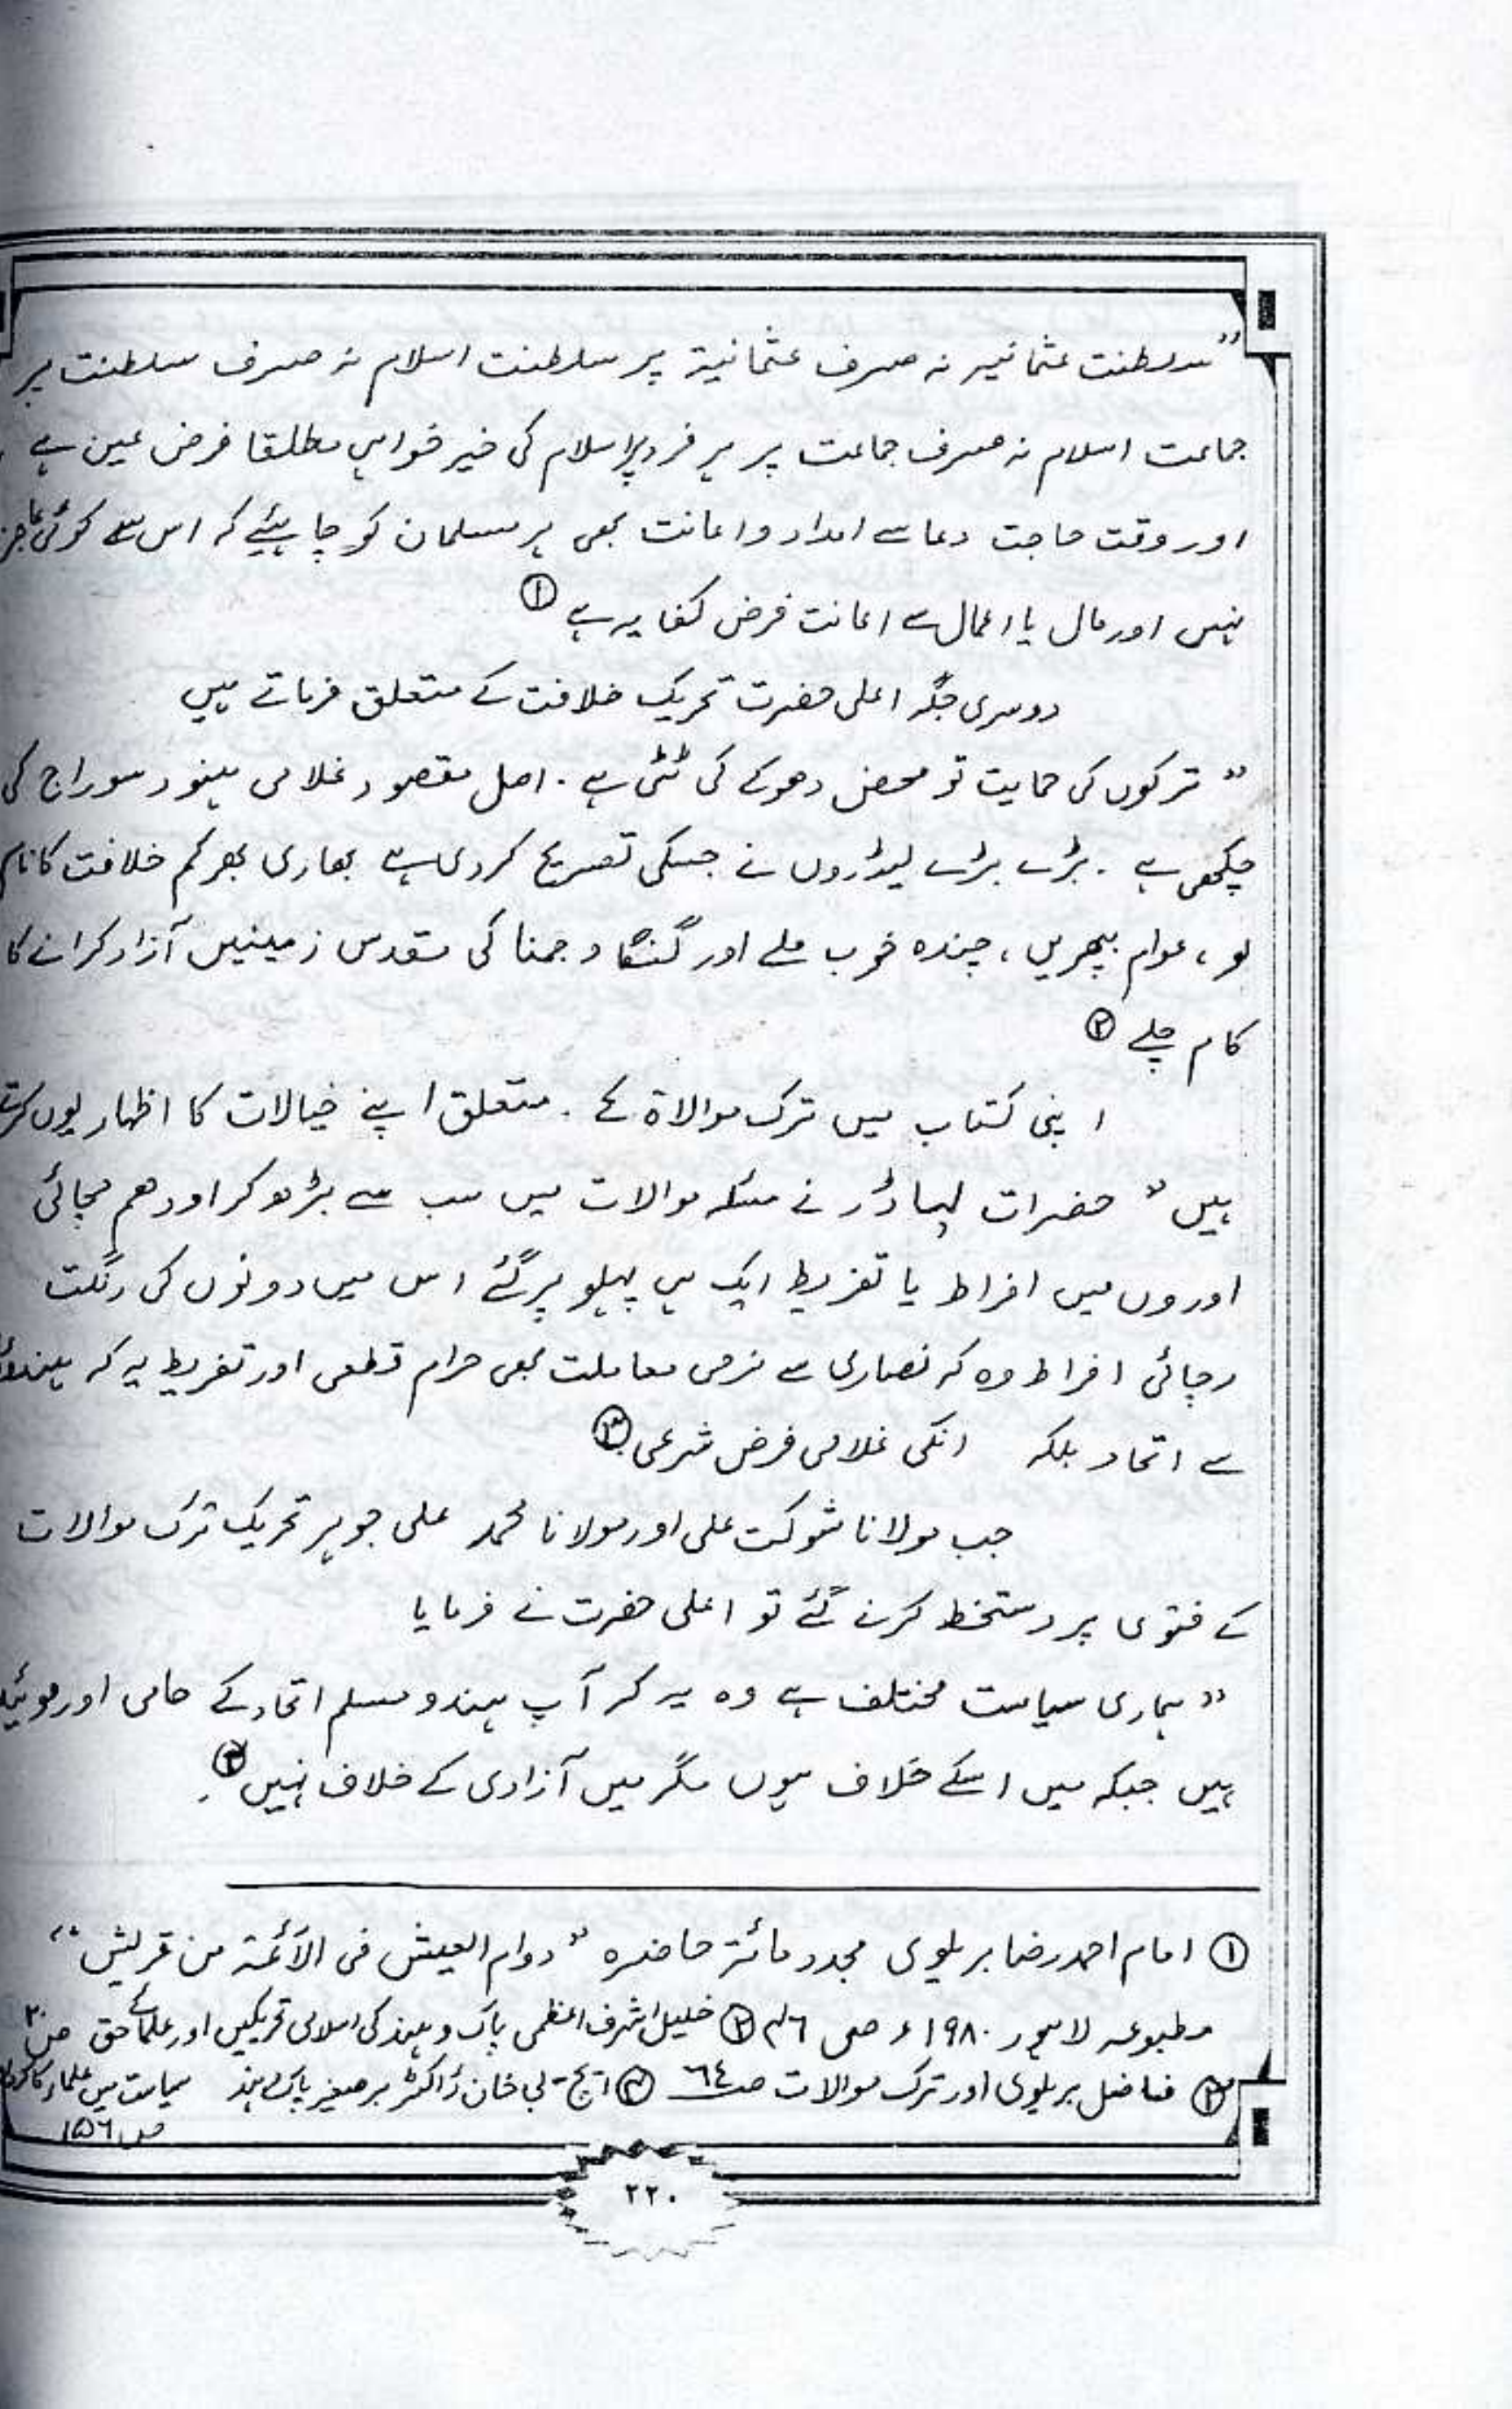 ”سلطنت عثمانیہ نہ صرف عثمانیۃ پر سلطنت اسلام نہ صرف سلطنت پر
جماعت اسلام نہ صرف جماعت پر ہر فرد پر اسلام کی خیر خواہی مطلقا فرض عین ہے
اور وقت حاجت دعا سے امداد و اعانت بھی ہر مسلمان کو چاہئیے کہ اس سے کوئی عاجز
نہیں اور مال یا اعمال سے اعانت فرض کفایہ ہے ①
دوسری جگہ اعلی حضرت تحریک خلافت کے متعلق فرماتے ہیں
” ترکوں کی حمایت تو محض دھوکے کی ٹٹی ہے . اصل مقصود غلامی ہنود سوراج کی
چکھی ہے . بڑے بڑے لیڈروں نے جسکی تصریح کر دی ہے بھاری بھرکم خلافت کا نام
لو ، عوام بپھریں ، چندہ خوب ملے اور گنگا و جمنا کی مقدس زمینیں آزاد کرانے کا
کام چلے ②
اپنی کتاب میں ترک موالاۃ کے . متعلق اپنے خیالات کا اظہار یوں کرتے
ہیں ” حضرات لیڈر نے مسئلہ موالات میں سب سے بڑھ کر اودھم مچائی
اوروں میں افراط یا تفریط ایک ہی پہلو پر گئے اس میں دونوں کی رنگت
رچائی افراط وہ کہ نصاری سے نرمی معاملت بھی حرام قطعی اور تفریط یہ کہ ہندوؤں
سے اتحاد بلکہ انکی غلامی فرض شرعی ③
جب مولانا شوکت علی اور مولانا محمد علی جوہر تحریک ترک موالات
کے فتوی پر دستخط کرنے گئے تو اعلی حضرت نے فرمایا
” ہماری سیاست مختلف ہے وہ یہ کہ آپ ہندو مسلم اتحاد کے حامی اور موئید
ہیں جبکہ میں اسکے خلاف ہوں مگر میں آزادی کے خلاف نہیں ④
① امام احمد رضا بریلوی مجدد مائۃ حاضرہ ” دوام العیش فی الأئمۃ من قریش “
مطبوعہ لاہور ۱۹۸۰ء ص ۴۶ ② خلیل اشرف اعظمی پاک و ہند کی اسلامی تحریکیں اور علمائے حق ص
③ فاضل بریلوی اور ترک موالات ص ٦٤ ④ ایچ بی خان ڈاکٹر برصغیر پاک ہند سیاست میں علماء کا کردار
ص ۱۵٦
۲۲۰